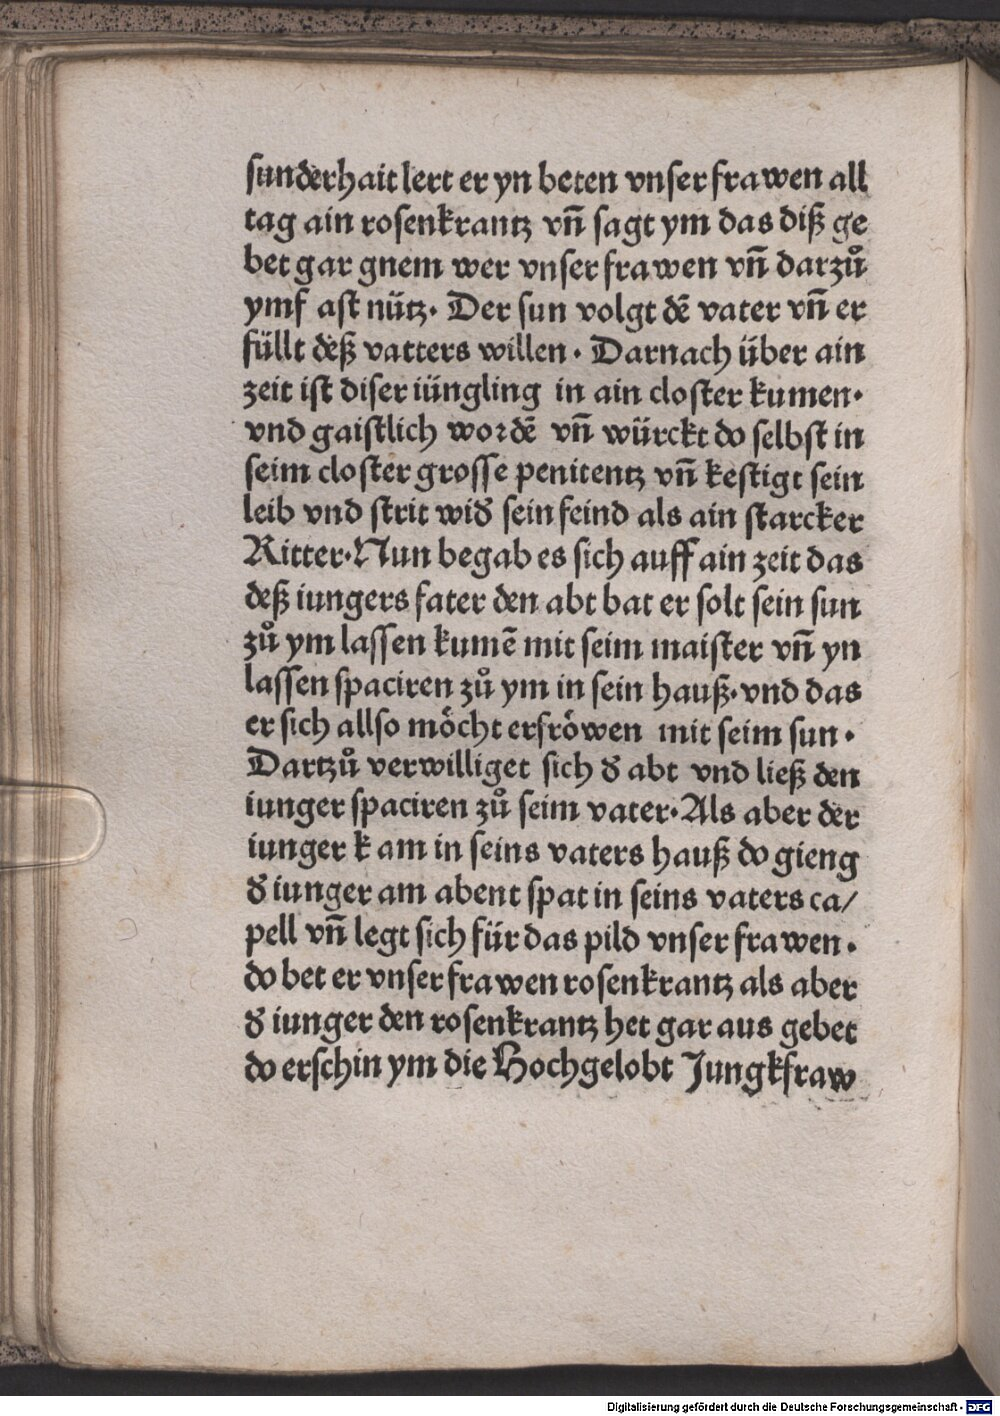 sunderhait lert er yn beten vnser frawen all
tag ain rosenkrantz vn̄ sagt ym das diß ge
bet gar gnem wer vnser frawen vn̄ darzuͦ
ymf ast nütz· Der sun volgt dē vater vn̄ er
füllt deß vatters willen · Darnach über ain
zeit ist diser iüngling in ain closter kumen·
vnd gaistlich wordē vn̄ würckt do selbst in
seim closter grosse penitentz vn̄ kestigt sein
leib vnd strit wid̕ sein feind als ain starcker
Ritter·Nun begab es sich auff ain zeit das
deß iungers fater den abt bat er solt sein sun
zuͦ ym lassen kumē mit seim maister vn̄ yn
lassen spaciren zuͦ ym in sein hauß·vnd das
er sich allso moͤcht erfroͤwen mit seim sun ·
Dartzuͦ verwilliget sich d̕ abt vnd ließ den
iunger spaciren zuͦ seim vater·Als aber der
iunger k am in seins vaters hauß do gieng
d̕ iunger am abent spat in seins vaters ca/
pell vn̄ legt sich für das pild vnser frawen ·
do bet er vnser frawen rosenkrantz als aber
d̕ iunger den rosenkrantz het gar aus gebet
do erschin ym die Hochgelobt Jungkfraw
Digitalisierung gefördert durch die Deutsche Forschungsgemeinschaft · DFG